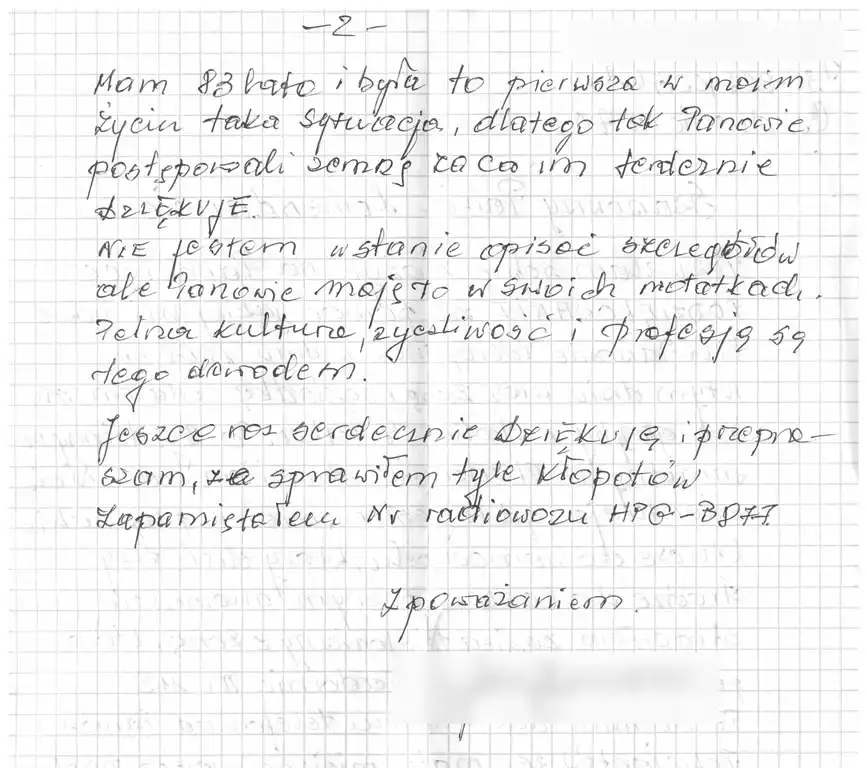 -2-
Mam 83 lata i była to pierwsza w moim
życiu taka sytuacja, dlatego tak Panowie
postępowali zemną za co im serdecznie
DZIĘKUJĘ.
NIE jestem wstanie opisać szczegółów
ale Panowie mają to w swoich notatkach.
Pełna kultura, życzliwość i profesją są
tego dowodem.
Jeszcze raz serdecznie DZIĘKUJĘ i przepra-
szam, że sprawiłem tyle kłopotów
Zapamiętałem Nr radiowozu HPG-B877.
Zpoważaniem.